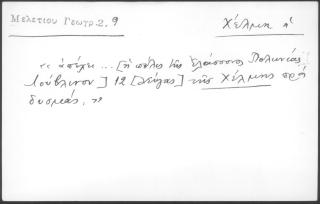 Μελετίου Γεωγρ.2. 9
Χέλμη ἡ
"ἀπέχει ... [ἡ πόλις τῆς Ἐλάσσονος Πολωνίας
Λούβλινον] 12 [λεύγας] τῆς Χέλμης πρὸς
δυσμάς, "